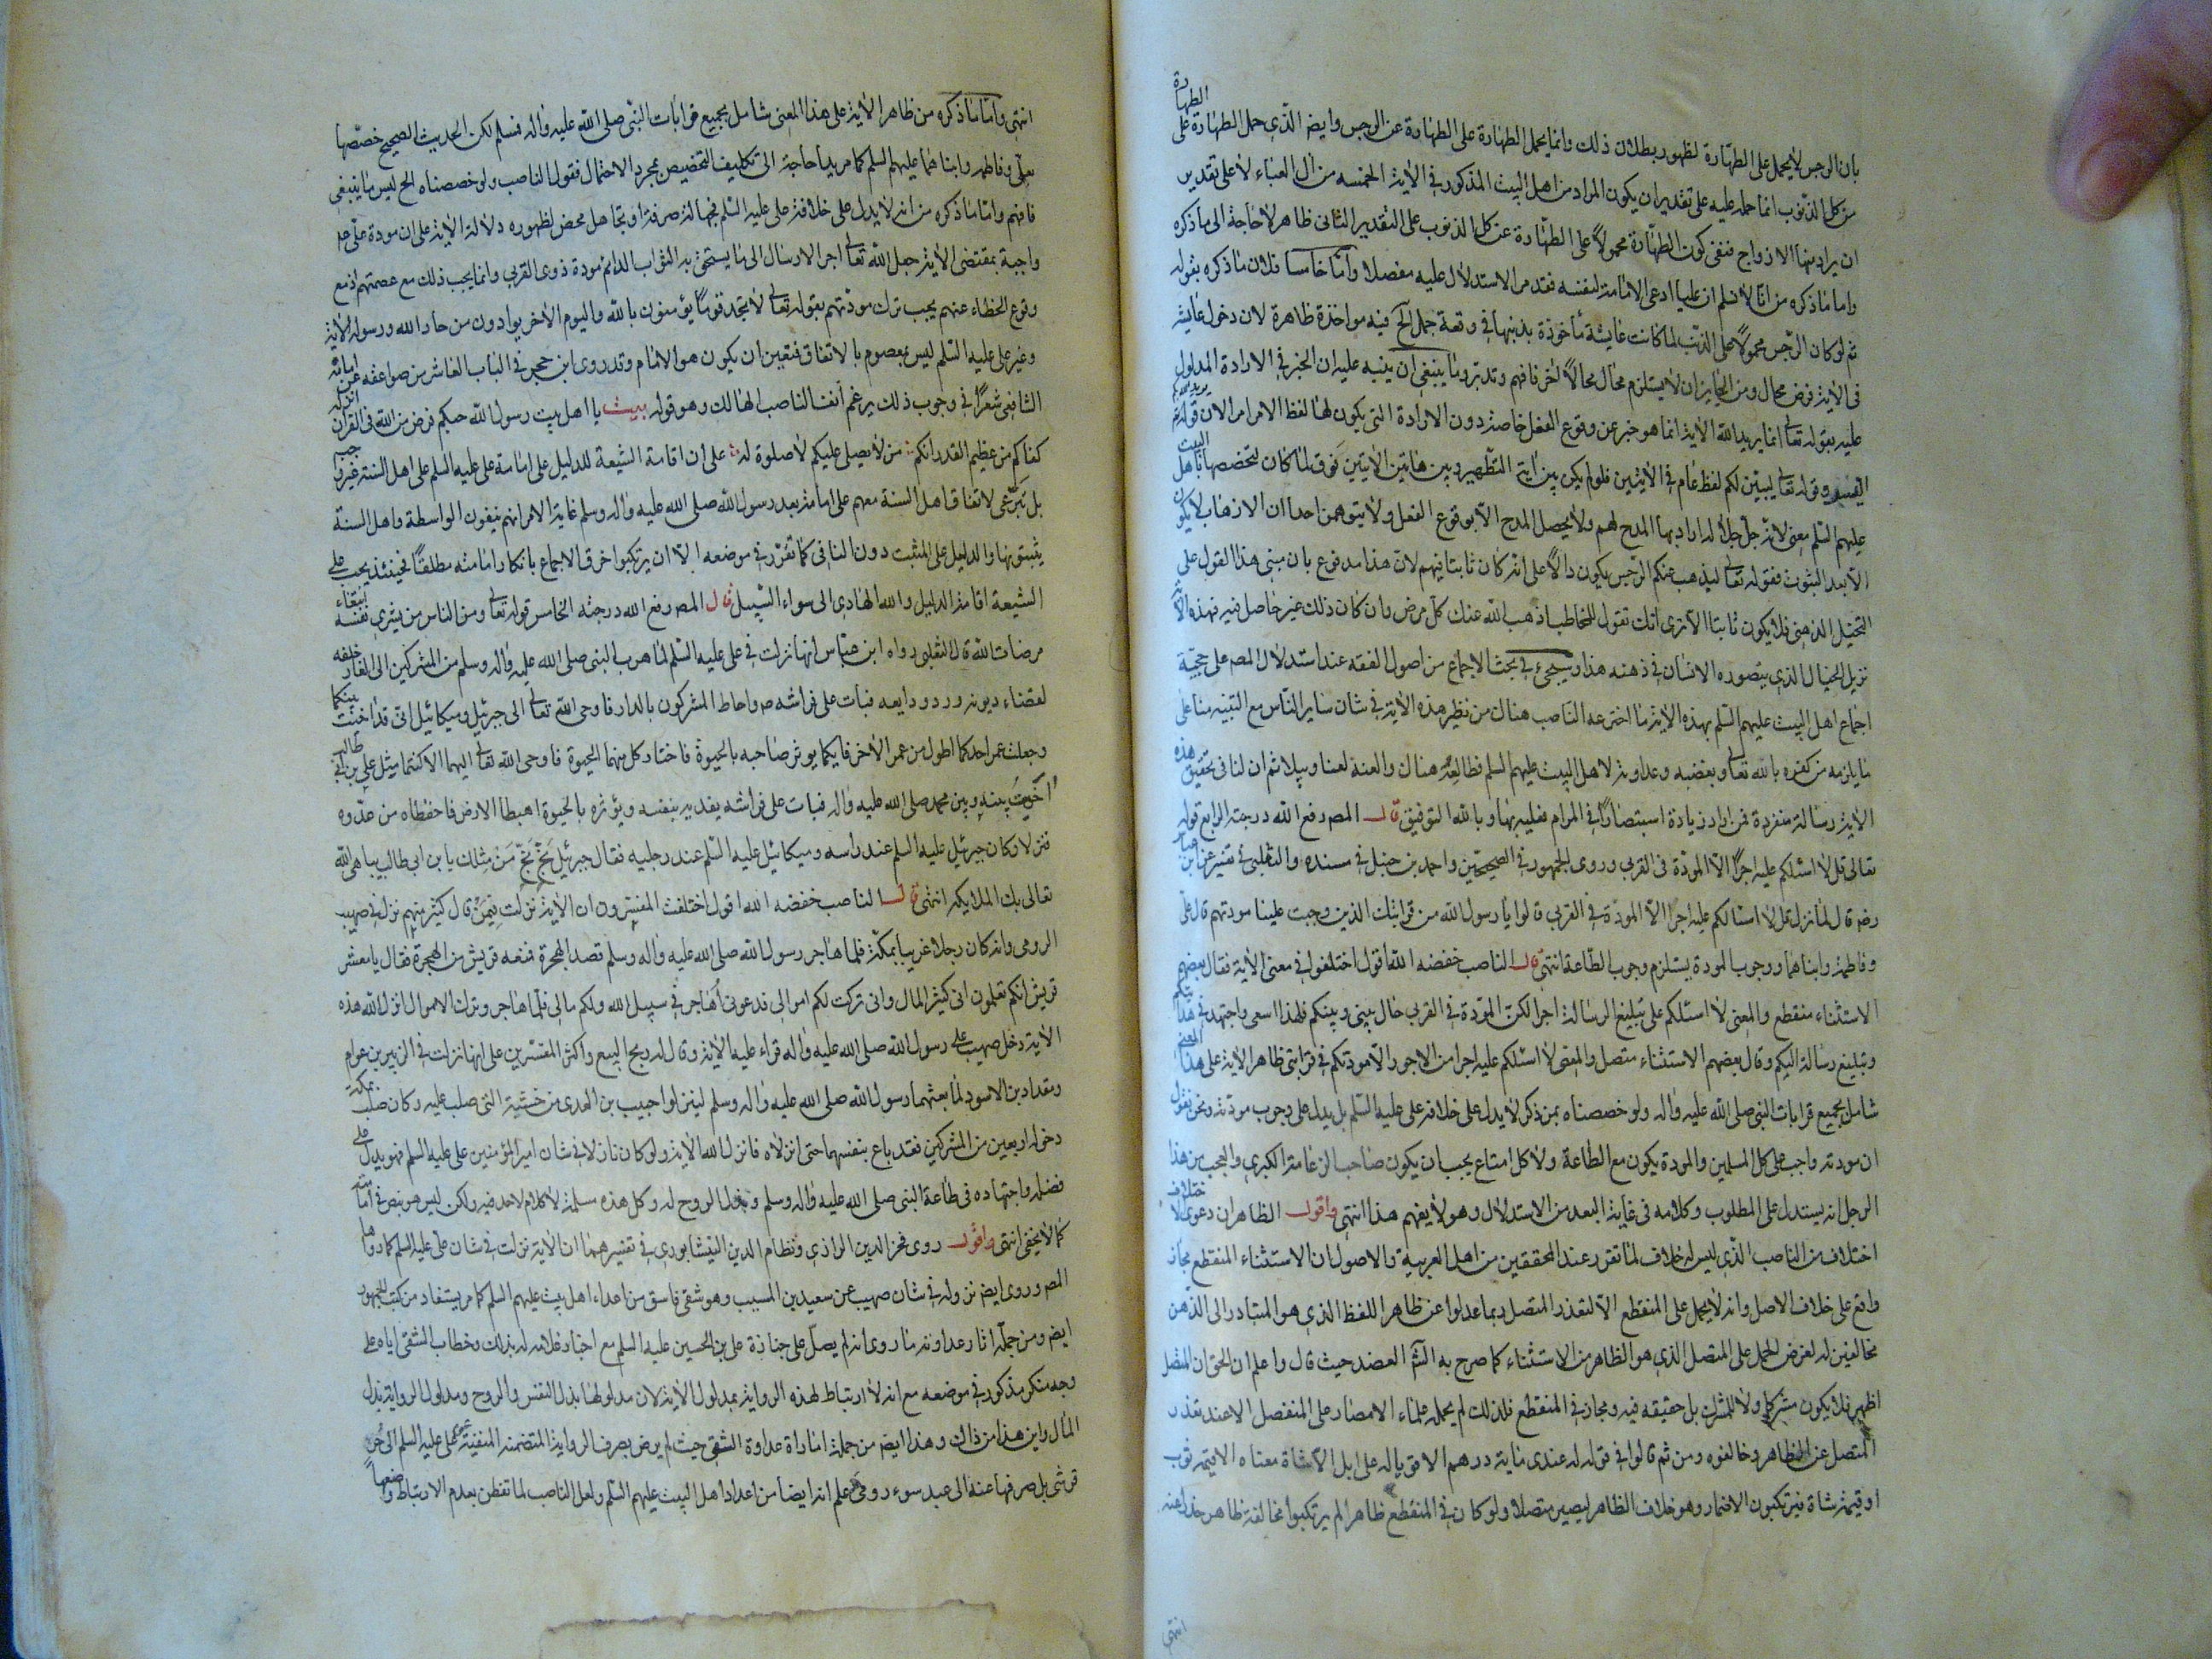 بان الرجس لا يحمل على الطهارة لظهور بطلان ذلك وانما يحمل الطهارة على الطهارة عن الرجس وايضا الذي حمل الطهارة على الطهارة
من كل الذنوب انما حمله عليه على تقدير ان يكون المراد من اهل البيت المذكور في الاية الخمسه من ال العباء لا على تقدير
ان يراد بها الازواج فنفى كون الطهارة محمولا على الطهارة عن كل الذنوب على التقدير الثاني ظاهر لا حاجة الى ما ذكره
واما ما ذكره من انا لا نسلم ان عليا ادعى الامامة لنفسه فقد مر الاستدلال عليه مفصلا واما خامسا فلان ما ذكره بقوله
ثم لو كان الرجس محمولا على الذنب لما كانت عايشة مأخوذة بذنبها في وقعة جمل الخ فيه مواخذة ظاهرة لان دخول عايشة
في الاية فرض محال ومن الجايز ان لا يستلزم محال محالا اخر فافهم وتدبر ومما ينبغي ان ينبه عليه ان الخبر في الارادة المدلول
عليه بقوله تعالى انما يريد الله الاية انما هو خبر عن وقوع الفعل خاصة دون الارادة التي يكون لها لفظ الامر امر الان قوله
وقوله تعالى ليبين لكم لفظ عام في الايتين فلو لم يكن بين اية التطهير وبين هاتين الايتين فرق لما كان لتخصصها باهل البيت
عليهم السلم معنى لانه جل جلاله اراد بها المدح لهم ولا يحصل المدح الا بوقوع الفعل ولا يتوهمن احد ان الاذهاب لا يكون
الا بعد الثبوت فقوله تعالى ليذهب عنكم الرجس يكون دالا على انه كان ثابتا فيهم لان هذا مدفوع بان مبنى هذا القول على
التخيل الذهني فلا يكون ثابتا الا ترى انك تقول للمخاطب اذهب الله عنك كل مرض وان كان ذلك غير حاصل فيه فهذه الاية
نزيل الخيال الذي يتصوره الانسان في ذهنه هذا وسيجيء في بحث الاجماع من اصول الفقه عند استدلال المصر على حجية
اجماع اهل البيت عليهم السلم بهذه الاية ما اخترعه الناصب هناك من نظير هذه الاية في شان ساير الناس مع التنبيه منا على
ما يلزمه من كفره بالله تعالى وبغضه وعداوته لاهل البيت عليهم السلم فطالعه هناك والعنه لعنا وبيلا ثم ان لنا في تحقيق هذه
الاية رسالة منفردة فمن اراد زيادة استبصار في المرام فعليه بها وبالله التوفيق قال المصر رفع الله درجته الرابع قوله
تعالى قل لا اسئلكم عليه اجرا الا المودة في القربى وروى الجمهور في الصحيحين واحمد بن حنبل في مسنده والثعلبي في تفسيره عن ابن عباس
رضه قال لما نزل قل لا اسئلكم عليه اجرا الا المودة في القربى قالوا يا رسول الله من قرابتك الذين وجبت علينا مودتهم قال على
وفاطمة وابناهما ووجوب المودة يستلزم وجوب الطاعة انتهى قال الناصب خفضه الله اقول اختلفوا في معنى الاية فقال بعضهم
الاستثناء منقطع والمعنى لا اسئلكم على تبليغ الرسالة اجرا لكن المودة في القربى حال بيني وبينكم فلهذا اسعى واجتهد في هدايتكم
وتبليغ رسالة اليكم وقال بعضهم الاستثناء متصل والمعنى لا اسئلكم عليه اجرا من الاجور الا مودتكم في قرابتي ظاهر الاية على هذا المعنى
شامل لجميع قرابات النبي صلى الله عليه واله ولو خصصناه بمن ذكر لا يدل على خلافة على عليه السلم بل يدل على وجوب مودته ونحن نقول
ان مودته واجب على كل المسلمين والمودة يكون مع الطاعة ولا كل امتاع يجب ان يكون صاحب الزعامة الكبرى والعجب من هذا
الرجل انه يستدل على المطلوب وكلامه في غاية البعد من الاستدلال وهو لا يفهم هذا انتهى واقول الظاهر ان دعوى الاختلاف
اختلاف من الناصب الذي ليس له خلاف لما تقرر عند المحققين من اهل العربية والاصول ان الاستثناء المنقطع مجاز
واقع على خلاف الاصل وانه لا يحمل على المنقطع الا لتعذر المتصل ربما عدلوا عن ظاهر اللفظ الذي هو المتبادر الى الذهن
مخالفين له لغرض الحمل على المتصل الذي هو الظاهر من الاستثناء كما صرح به الشم العضد حيث قال واعلم ان الحق ان المتصل
اظهر فلا يكون مشتركا ولا للمشترك بل حقيقه فيه ومجاز في المنقطع فلذلك لم يحمله علماء الامصار على المنفصل الا عند تعذر
المتصل عن الظاهر وخالفوه ومن ثم قالوا في قوله له عندي ماية درهم الا ثوبا له على ابل الا شاة معناه الا قيمة ثوب
او قيمة شاة فيرتكبون الاضمار وهو خلاف الظاهر ليصير متصلا ولو كان في المنقطع ظاهرا لم يرتكبوا مخالفة ظاهر حذرا عنه
انتهى
انتهى واما ما ذكره من ظاهر الاية على هذا المعنى شامل لجميع قرابات النبي صلى الله عليه واله فمسلم لكن الحديث الصحيح خصصها
بعلى وفاطمه وابناهما عليهم السلم كما مر بيا حاجة الى تكليف التخصيص بمجرد الاحتمال فقول الناصب ولو خصصناه الخ ليس ما ينبغي
فافهم واما ما ذكره من انه لا يدل على خلافة على عليه السلم فجهالة صرفة او تجاهل محض لظهور دلالة الاية على ان مودة على
واجبة بمقتضى الاية جعل الله تعالى اجر الارسال الى ما يستحق به الثواب الدائم مودة ذوى القربى وانما يجب ذلك مع عصمتهم اذ مع
وقوع الخطاء عنهم يجب ترك مودتهم بقوله تعالى لا تجد قوما يؤمنون بالله واليوم الاخر يوادون من حاد الله ورسوله الاية
وغير على عليه السلم ليس بمعصوم بالاتفاق فتعين ان يكون هو الامام وقد روى ابن حجر في الباب العاشر من صواعقه عن امامه
الشافعي شعرا في وجوب ذلك يرغم انف الناصب الهالك وهو قوله بيت يا اهل بيت رسول الله حبكم فرض من الله في القرآن انزله
كفاكم من عظيم القدر انكم من لا يصلي عليكم لا صلوة له على ان اقامة الشيعة للدليل على امامة على عليه السلم على اهل السنة غير واجب
بل تبرعى لاتفاق اهل السنة معهم على امامته بعد رسول الله صلى الله عليه واله وسلم غاية الامر انهم ينفون الواسطة واهل السنة
يثبتونها والدليل على المثبت دون النافي كما تقرر في موضعه الا ان يرتكبوا خرق الاجماع بانكار امامته مطلقا فحينئذ يجب على
الشيعة اقامة الدليل والله الهادي الى سواء السبيل قال المصر رفع الله درجته الخامس قوله تعالى ومن الناس من يشري نفسه ابتغاء
مرضات الله قال الثعلبي رواه ابن عباس انها نزلت في على عليه السلم لما هرب النبي صلى الله عليه واله وسلم من المشركين الى الغار خلفه
لقضاء ديونه ورد ودايعه فبات على فراشه صه واحاط المشركون بالدار فاوحى الله تعالى الى جبرئيل وميكائيل اني قد اخيت بينكما
وجعلت عمر احدكما اطول من عمر الاخر فايكما يوثر صاحبه بالحيوة فاختار كل منهما الحيوة فاوحى الله تعالى اليهما الا كنتما مثل على بن ابي طالب
اخيت بينه وبين محمد صلى الله عليه واله فبات على فراشه يفديه بنفسه ويؤثره بالحيوة اهبطا الارض فاحفظاه من عدوه
فنزلا وكان جبرئيل عليه السلم عند راسه وميكائيل عليه السلم عند رجليه فقال جبرئيل بخ بخ من مثلك يا بن ابي طالب يباهى الله
تعالى بك الملايكه انتهى قال الناصب خفضه الله اقول اختلفت المفسرون ان الاية نزلت فيمن قال كثير منهم نزل في صهيب
الرومي وانه كان رجلا غريبا بمكة فلما هاجر رسول الله صلى الله عليه واله وسلم قصد الهجرة فمنعه قريش من الهجرة فقال يا معشر
قريش انكم تعلمون اني كثير المال واني تركت لكم اموالي فدعوني اهاجر في سبيل الله ولكم مالي فلما هاجر وترك الاموال انزل الله هذه
الاية دخل صهيب على رسول الله صلى الله عليه واله قراء عليه الاية وقال له ربح البيع واكثر المفسرين على انها نزلت في الزبير بن عوام
ومقداد بن الاسود لما بعثهما رسول الله صلى الله عليه واله وسلم لينزلوا خبيب بن العدى من خشبة التي صلب عليه وكان صلب بمكة
وحوله اربعين من المشركين فقد باع بنفسهما حتى انزلاه فانزل الله الاية ولو كان نازلا في شان امير المؤمنين على عليه السلم فهو يدل على
فضله واجتهاده في طاعة النبي صلى الله عليه واله وسلم وبذل الروح له وكل هذه مسلمة لا كلام لاحد فيه ولكن ليس هو بنص في امامته
كما لا يخفى انتهى واقول روى فخر الدين الرازي ونظام الدين النيشابوري في تفسيرهما ان الاية نزلت في شان على عليه السلم كما رواها
المصر وروى ايضا نزوله في شان صهيب عن سعيد بن المسيب وهو شقى فاسق من اعداء اهل بيت عليهم السلم كما مر يستفاد من كتب الجمهور
ايضا ومن جملة اثار عداوته ما روى انه لم يصل على جنازة على بن الحسين عليه السلم مع اخبار غلامه له بذلك وخطاب الشقى اياه على
وجه منكر مذكور في موضعه مع انه لا ارتباط لهذه الرواية بمدلول الاية لان مدلولها بذل النفس والروح ومدلول الرواية بذل
المال واين هذا من ذاك وهذا ايضا من جملة اماراة عداوة الشقى حيث لم يرض بصرف الرواية المتضمنة المنقبة عن على عليه السلم الى
قرشى بل صرفها عنه الى عبد سوء رومي علم انه ايضا من اعداد اهل البيت عليهم السلم ولعل الناصب لما تفطن بعدم الارتباط